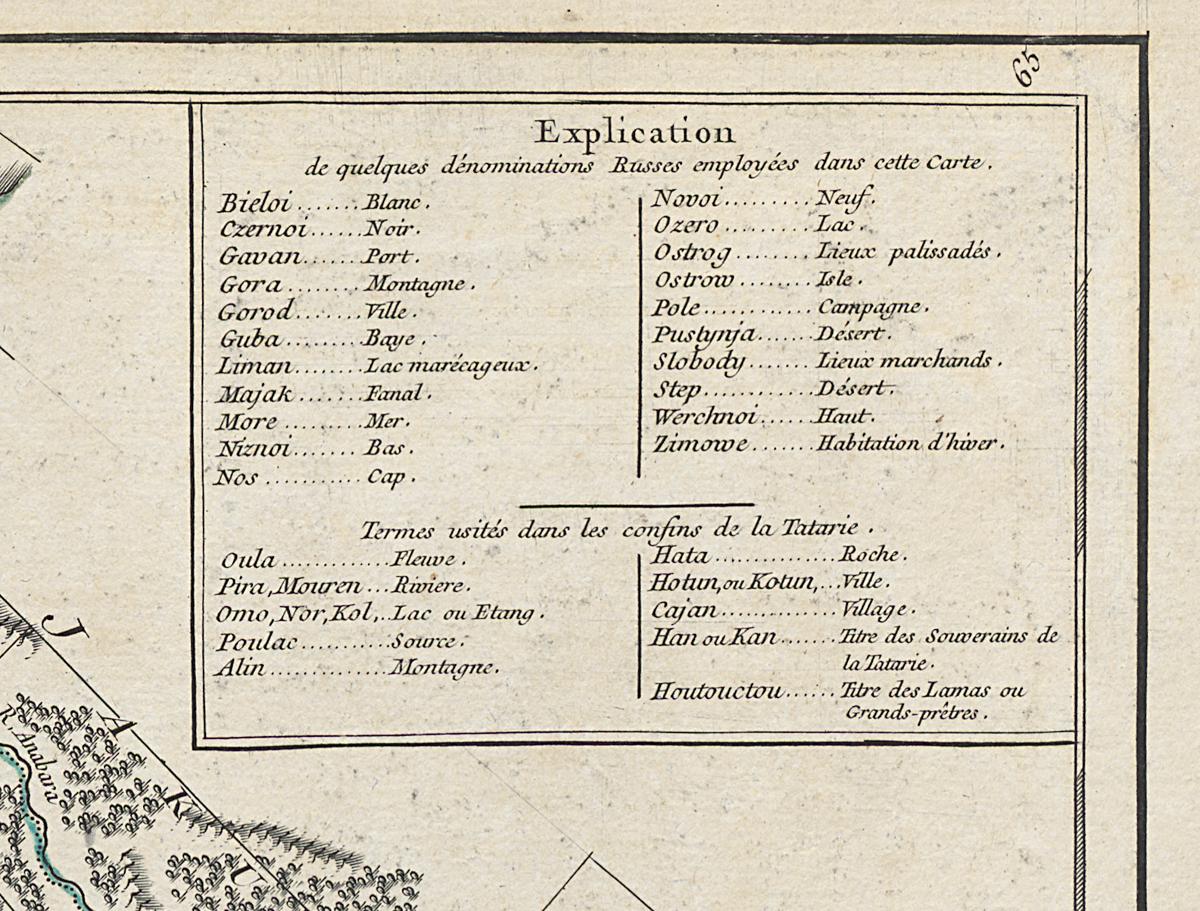 65
Explication
de quelques dénominations Russes employées dans cette Carte.
Bieloi.......Blanc.
Czernoi......Noir.
Gavan.......Port.
Gora ........Montagne.
Gorod........Ville.
Guba .........Baye.
Liman........Lac marécageux.
Majak .......Fanal.
More .........Mer.
Niznoi........Bas.
Nos ...........Cap.
Novoi.........Neuf.
Ozero .........Lac.
Ostrog ........Lieux palissadés.
Ostrow ........Isle.
Pole............Campagne.
Pustynja.......Désert.
Slobody.......Lieux marchands.
Step............Désert.
Werchnoi......Haut.
Zimowe.......Habitation d'hiver.
Termes usités dans les confins de la Tatarie.
Oula .............Fleuve.
Pira, Mouren ...Riviere.
Omo, Nor, Kol,..Lac ou Etang.
Poulac...........Source.
Alin..............Montagne.
Hata ..............Roche.
Hotun, ou Kotun,...Ville.
Cajan.............Village.
Han ou Kan.......Titre des Souverains de
la Tatarie.
Houtouctou......Titre des Lamas ou
Grands-prêtres.
J
A
K
U
R. Anabara